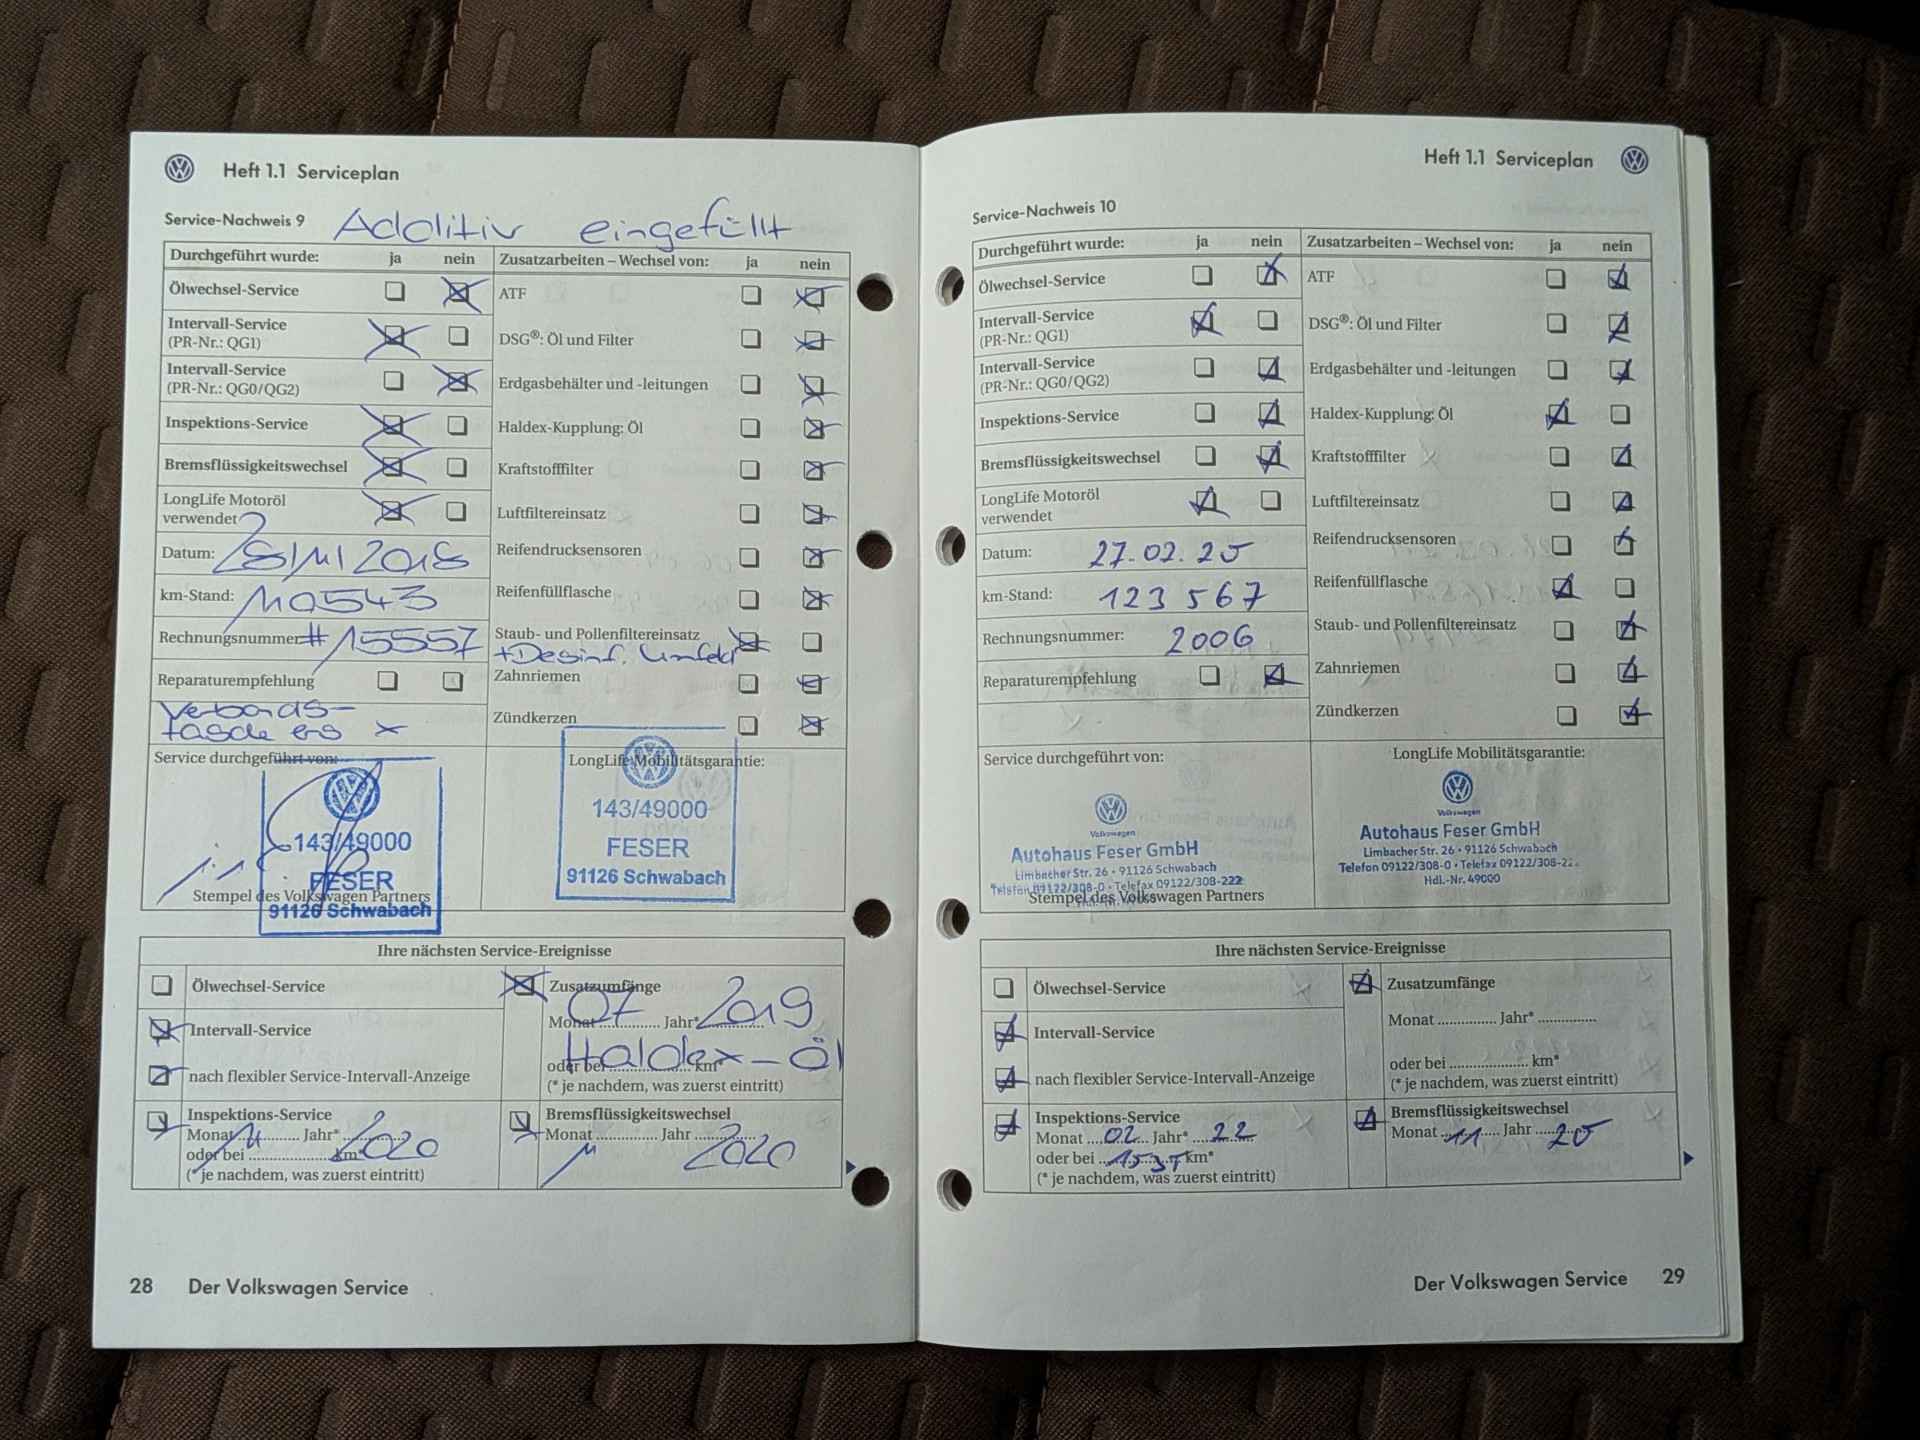 Heft 1.1 Serviceplan
Service-Nachweis 9 Additiv eingefüllt
Durchgeführt wurde: ja nein Zusatzarbeiten – Wechsel von: ja nein
Ölwechsel-Service ATF
Intervall-Service
(PR-Nr.: QG1) DSG®: Öl und Filter
Intervall-Service
(PR-Nr.: QG0/QG2) Erdgasbehälter und -leitungen
Inspektions-Service Haldex-Kupplung: Öl
Bremsflüssigkeitswechsel Kraftstofffilter
LongLife Motoröl
verwendet Luftfiltereinsatz
Datum: 28/11/2018 Reifendrucksensoren
km-Stand: 110543 Reifenfüllflasche
Rechnungsnummer: #15557 Staub- und Pollenfiltereinsatz
+Desinf. Umfeld
Reparaturempfehlung Zahnriemen
Verbands-
tasche ers Zündkerzen
Service durchgeführt von: LongLife Mobilitätsgarantie:
143/49000
FESER
91126 Schwabach
Stempel des Volkswagen Partners
143/49000
FESER
91126 Schwabach
Ihre nächsten Service-Ereignisse
Ölwechsel-Service Zusatzumfänge
Intervall-Service Monat 07 Jahr* 2019
Haldex-Öl
nach flexibler Service-Intervall-Anzeige oder bei km*
(* je nachdem, was zuerst eintritt)
Inspektions-Service Bremsflüssigkeitswechsel
Monat 11 Jahr* 2020 Monat 11 Jahr 2020
oder bei km*
(* je nachdem, was zuerst eintritt)
28 Der Volkswagen Service
Heft 1.1 Serviceplan
Service-Nachweis 10
Durchgeführt wurde: ja nein Zusatzarbeiten – Wechsel von: ja nein
Ölwechsel-Service ATF
Intervall-Service
(PR-Nr.: QG1) DSG®: Öl und Filter
Intervall-Service
(PR-Nr.: QG0/QG2) Erdgasbehälter und -leitungen
Inspektions-Service Haldex-Kupplung: Öl
Bremsflüssigkeitswechsel Kraftstofffilter
LongLife Motoröl
verwendet Luftfiltereinsatz
Datum: 27.02.20 Reifendrucksensoren
km-Stand: 123 567 Reifenfüllflasche
Rechnungsnummer: 2006 Staub- und Pollenfiltereinsatz
Reparaturempfehlung Zahnriemen
Zündkerzen
Service durchgeführt von: LongLife Mobilitätsgarantie:
Volkswagen
Autohaus Feser GmbH
Limbacher Str. 26 • 91126 Schwabach
Telefon 09122/308-0 • Telefax 09122/308-222
Stempel des Volkswagen Partners
Volkswagen
Autohaus Feser GmbH
Limbacher Str. 26 • 91126 Schwabach
Telefon 09122/308-0 • Telefax 09122/308-22
Hdl.-Nr. 49000
Ihre nächsten Service-Ereignisse
Ölwechsel-Service Zusatzumfänge
Intervall-Service Monat Jahr*
nach flexibler Service-Intervall-Anzeige oder bei km*
(* je nachdem, was zuerst eintritt)
Inspektions-Service Bremsflüssigkeitswechsel
Monat 02 Jahr* 22 Monat 11 Jahr 20
oder bei km*
(* je nachdem, was zuerst eintritt)
Der Volkswagen Service 29